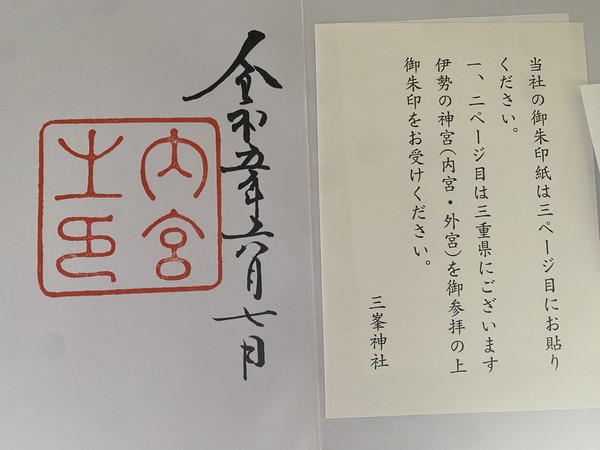 当社の御朱印紙は三ページ目にお貼り
ください。
一、二ページ目は三重県にございます
伊勢の神宮(内宮・外宮)を御参拝の上
御朱印をお受けください。
三峯神社
令和五年六月七日
内宮
之印